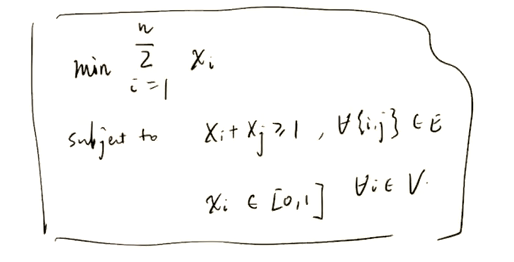 min n∑i=1 xi
subject to xi + xj ≥ 1 , ∀{i,j} ∈ E
xi ∈ [0,1] ∀i ∈ V.